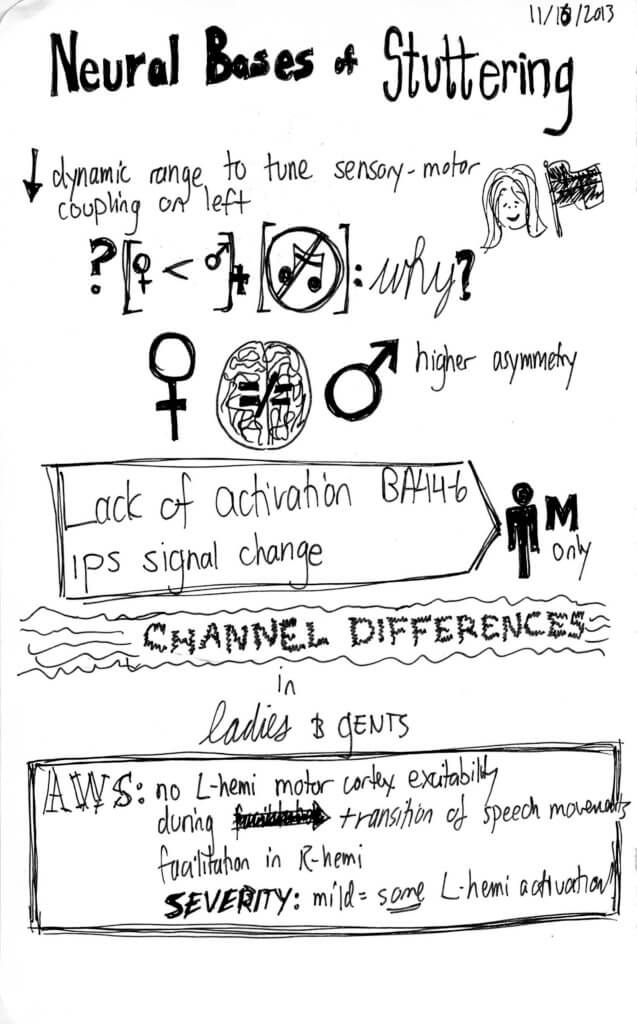 11/16/2013
Neural Bases of Stuttering
↓ dynamic range to tune sensory-motor
coupling on left
? [♀ < ♂] + [ ] : why?
♀ ≠ ♂ higher asymmetry
Lack of activation BA44-6
IPS signal change
M
only
CHANNEL DIFFERENCES
in
ladies & GENTS
AWS: no L-hemi motor cortex excitability
during transition of speech movements
facilitation in R-hemi
SEVERITY: mild = some L-hemi activation